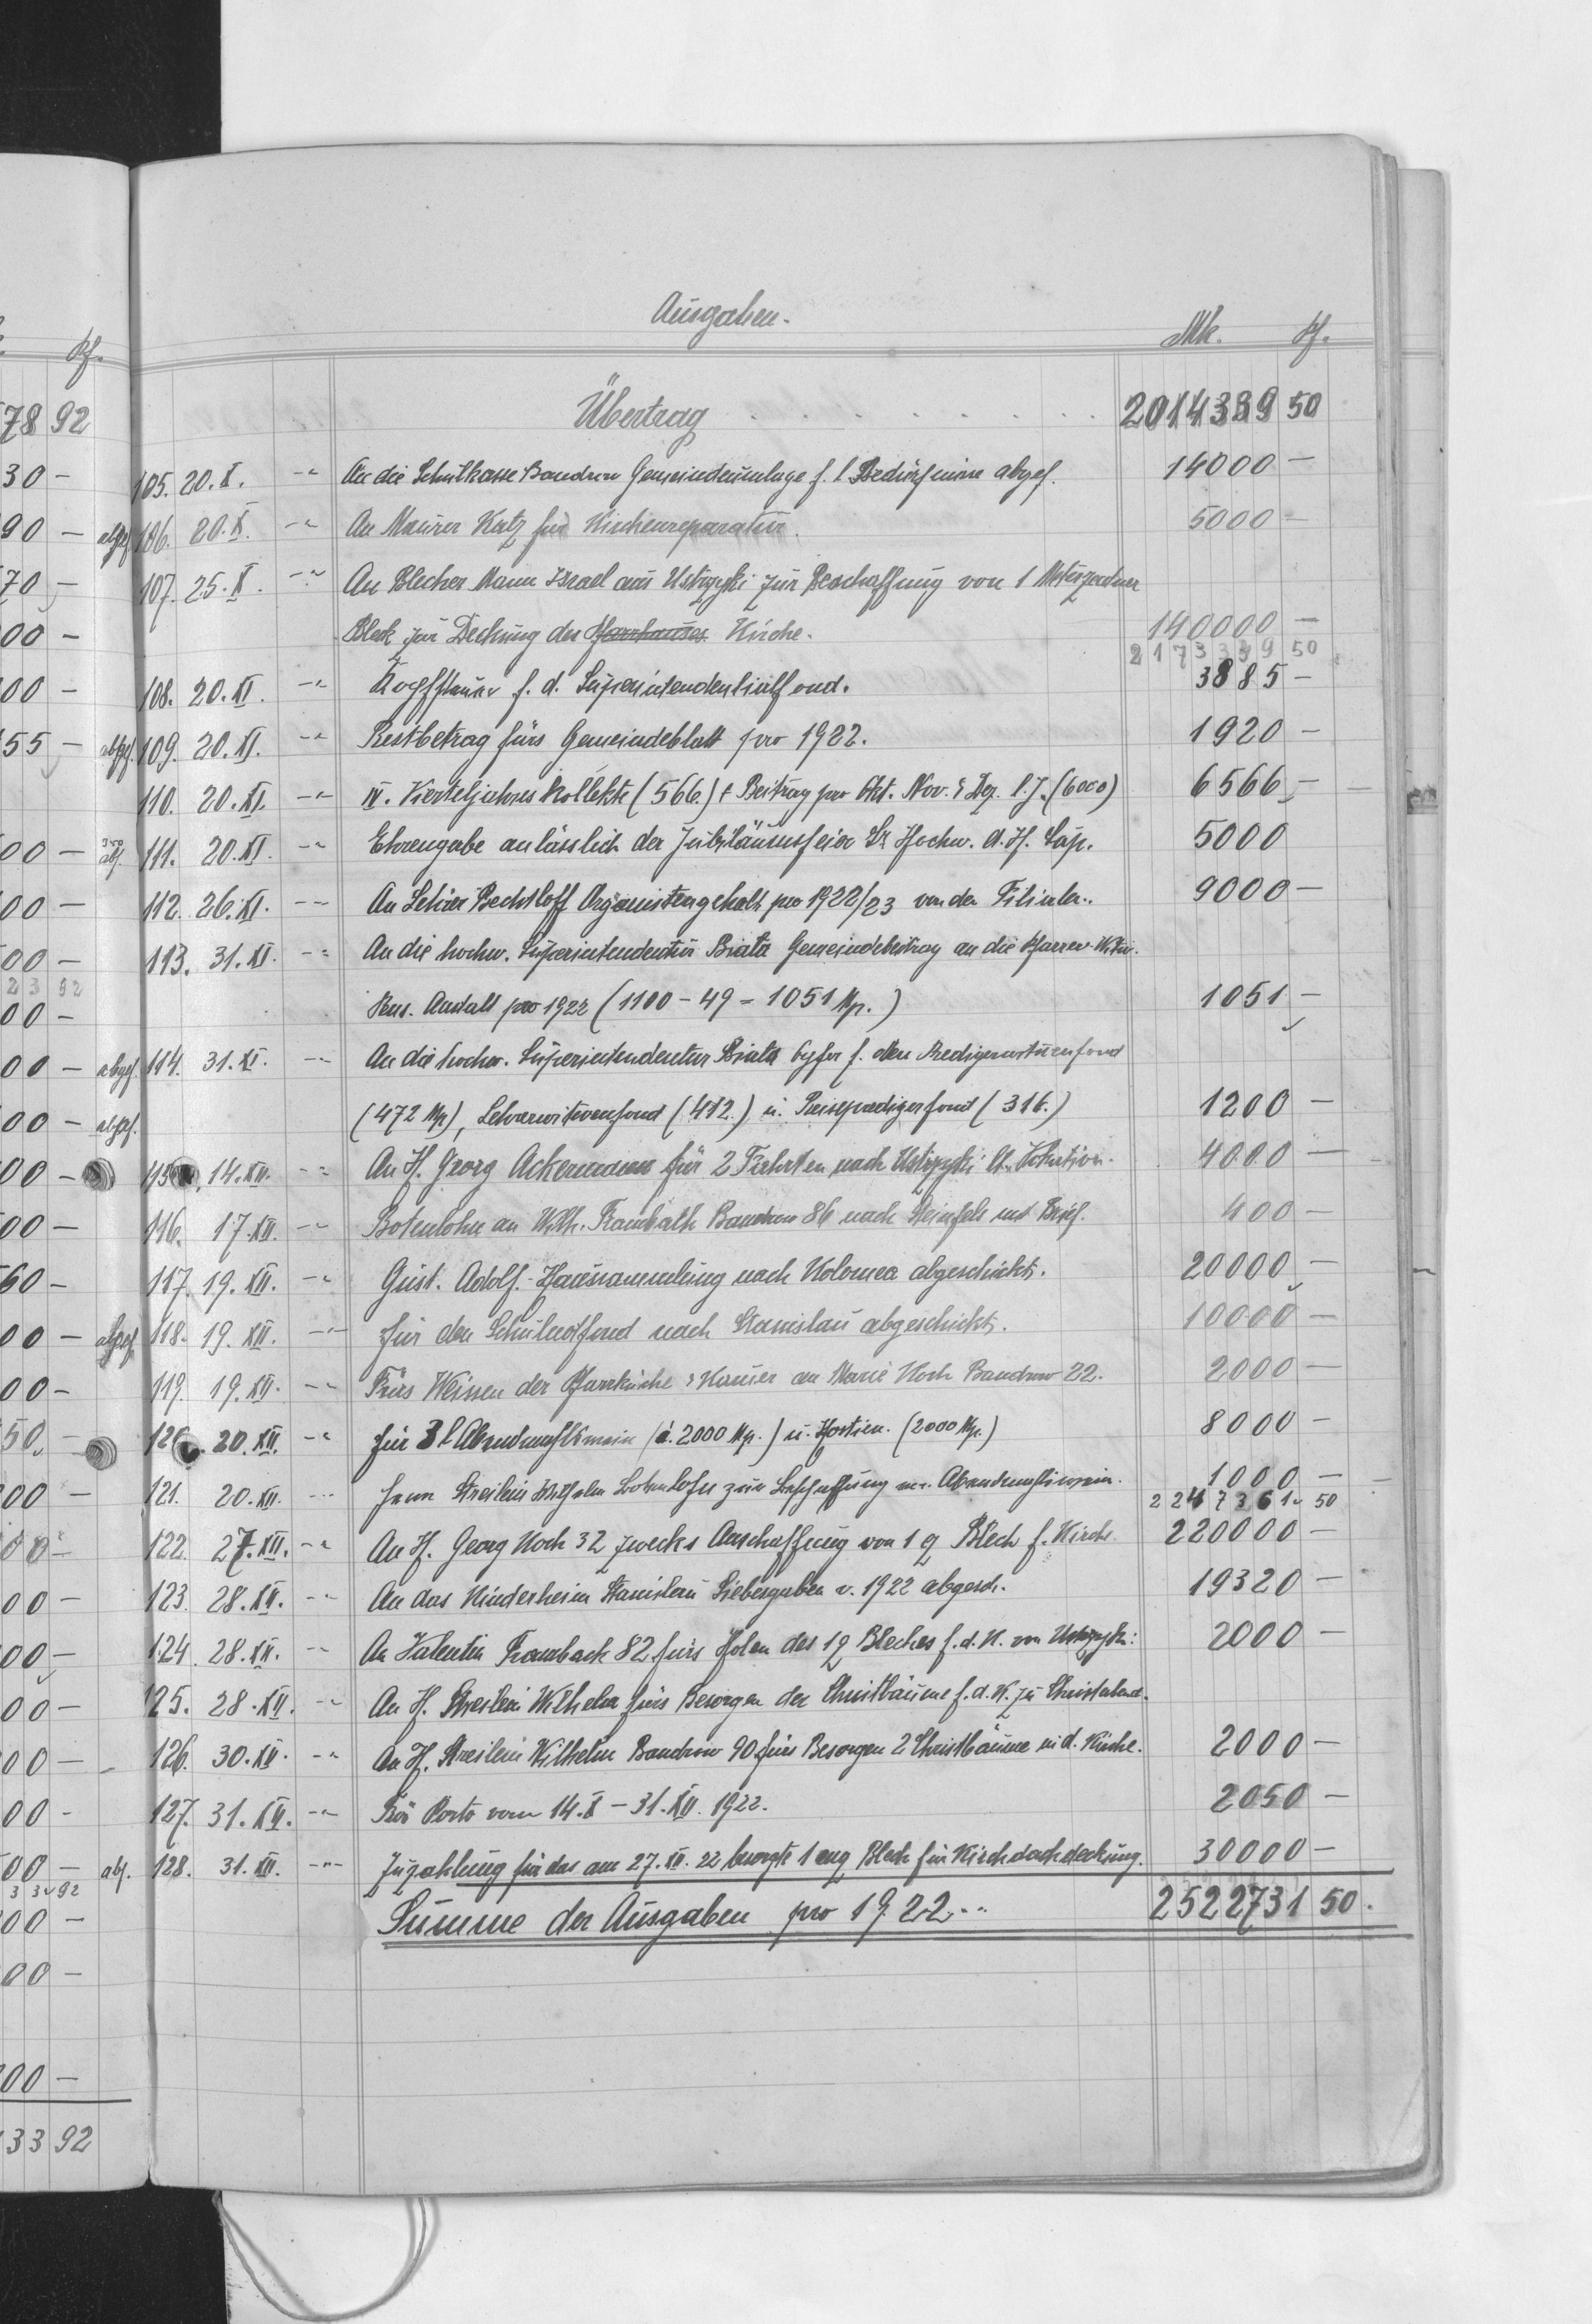 Ausgaben.
Mk. Pf.
Übertrag . . . . . . . . 2014339 50
105. 20. X. -"- An die Schulkasse Bandrow Gemeindeumlage f. l. Bedürfnisse abgef. 14000 –
abgef. 106. 20. X. -"- An Maurer Katz für Kirchenreparatur. 5000 –
107. 25. X. -"- An Blecher Mann Israel aus Ustrzyki zur Beschaffung von 1 Meterzentner
Blech zur Deckung des Pfarrhauses Kirche. 140000 –
2173339 50
108. 20. XI. -"- Kopfsteuer f. d. Superintendentialfond. 3885 –
abgef. 109. 20. XI. -"- Restbetrag fürs Gemeindeblatt pro 1922. 1920 –
110. 20. XI. -"- IV. Vierteljahres Kollekte (566.) + Beitrag pro Okt. Nov. & Dez. l. J. (6000) 6566 –
abf. 111. 20. XI. -"- Ehrengabe anlässlich der Jubiläumsfeier Sr. Hochw. d. H. Sup. 5000
112. 26. XI. -"- An Lehrer Bechtloff Organistengehalt pro 1922/23 von den Filialen. 9000 –
113. 31. XI. -"- An die hochw. Superintendentur Biała Gemeindebeitrag an die Pfarrer-Witw.
Pens. Anstalt pro 1922 (1100 – 49 = 1051 Mp.) 1051 –
abgef. 114. 31. XI. -"- An die hochw. Superintendentur Biała f. den Predigerwitwenfond
abgef. (472 Mp), Lehrerwitwenfond (412.) u. Reisepredigerfond (316.) 1200 –
115. 14. XII. -"- An H. Georg Ackermann für 2 Fahrten nach Ustrzyki 4000 –
116. 17. XII. -"- Botenlohn an Wilh. Rambach Bandrow 86 nach Steinfels mit Brief. 400 –
117. 19. XII. -"- Gust. Adolf.-Haussammlung nach Kolomea abgeschickt. 20000 –
abgef. 118. 19. XII. -"- für den Schulnotfond nach Stanislau abgeschickt. 10000 –
119. 19. XII. -"- Fürs Weissen der Pfarrküche & Kamer an Marie Koch Bandrow 22. 2000 –
120. 20. XII. -"- für 3 l Abendmahlswein (à. 2000 Mp.) u. Hostien. (2000 Mp.) 8000 –
121. 20. XII. -"- Herrn Streilein Wilhelm Botenlohn zur Beschaffung Abendmahlswein. 1000 –
2247361 50
122. 27. XII. -"- An H. Georg Koch 32 zwecks Anschaffung von 1 q Blech f. Kirche 220000 –
123. 28. XII. -"- An das Kinderheim Stanislau Liebesgaben v. 1922 abgesch. 19320 –
124. 28. XII. -"- An Valentin Rambach 82 fürs Holen des 1 q Bleches f. d. K. von Ustrzyki: 2000 –
125. 28. XII. -"- An H. Streilein Wilhelm fürs Besorgen der Christbäume f. d. K. zu Christabend.
126. 30. XII. -"- An H. Streilein Wilhelm Bandrow 90 fürs Besorgen 2 Christbäume in d. Kirche. 2000 –
127. 31. XII. -"- Für Porto vom 14. X – 31. XII. 1922. 2050 –
abf. 128. 31. XII. -"- Zuzahlung für das am 27. XII. 22 besorgte 1 Blech für Kirchdachdeckung. 30000 –
Summe der Ausgaben pro 1922... 2522731 50.